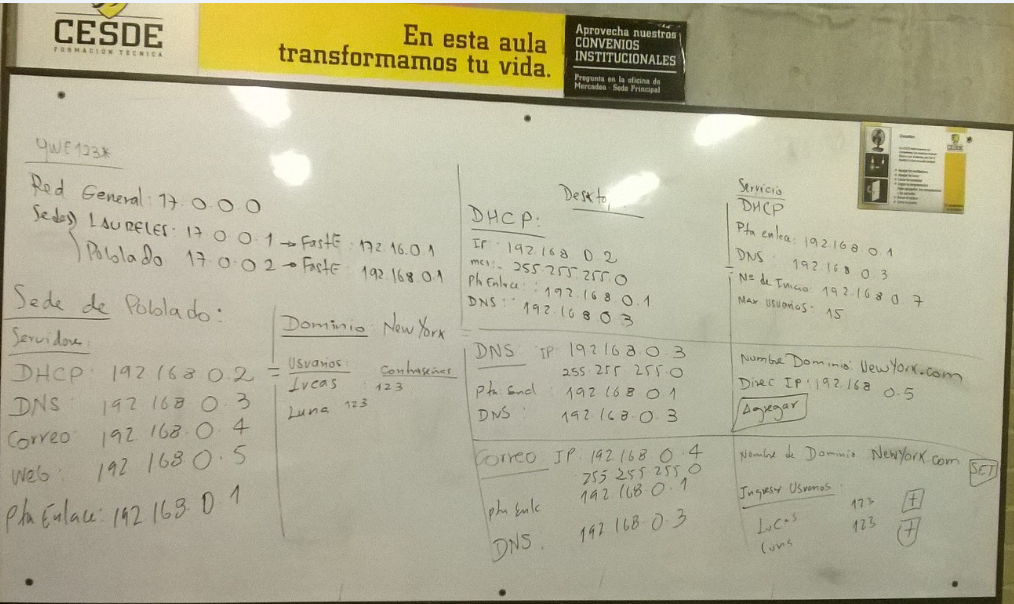 CESDE
FORMACIÓN TÉCNICA
En esta aula
transformamos tu vida.
Aprovecha nuestros
CONVENIOS
INSTITUCIONALES
Pregunta en la oficina de
Mercadeo - Sede Principal
QWE123*
Red General: 17.0.0.0
Sedes LAURELES: 17 0 0 1 → FastE: 172.16.0.1
Poblado 17 0 0 2 → FastE: 192.168.0.1
Sede de Poblado:
Servidore:
DHCP: 192 168 0.2
DNS: 192 168 0.3
Correo 192 168 0.4
Web: 192 168 0.5
Pta Enlace: 192 168 0 1
Dominio New York
Usuarios: Contraseñas
Lucas 123
Luna 123
Deskto
DHCP:
IP: 192.168 0.2
255.255.255.0
Pta Enlace: 192.168.0.1
DNS: 192.168 0 3
DNS IP 192 168 0.3
255.255.255.0
Pta End: 192 168 0 1
DNS: 192 168 0.3
Correo IP. 192 168 0.4
255 255 255.0
pta Enlc 192 168 0 1
DNS. 192.168.0.3
Servicio
DHCP
Pta enlca: 192 168 0 1
DNS: 192 168 0.3
Nº de Inicio 192 168 0 7
Max Usuarios: 15
Nombre Dominio: NewYork.com
Direc IP: 192.168 0.5
Agregar
Nombre de Dominio NewYork.com SET
Ingresar Usuarios:
Lucas 123 +
Luna 123 +
CESDE